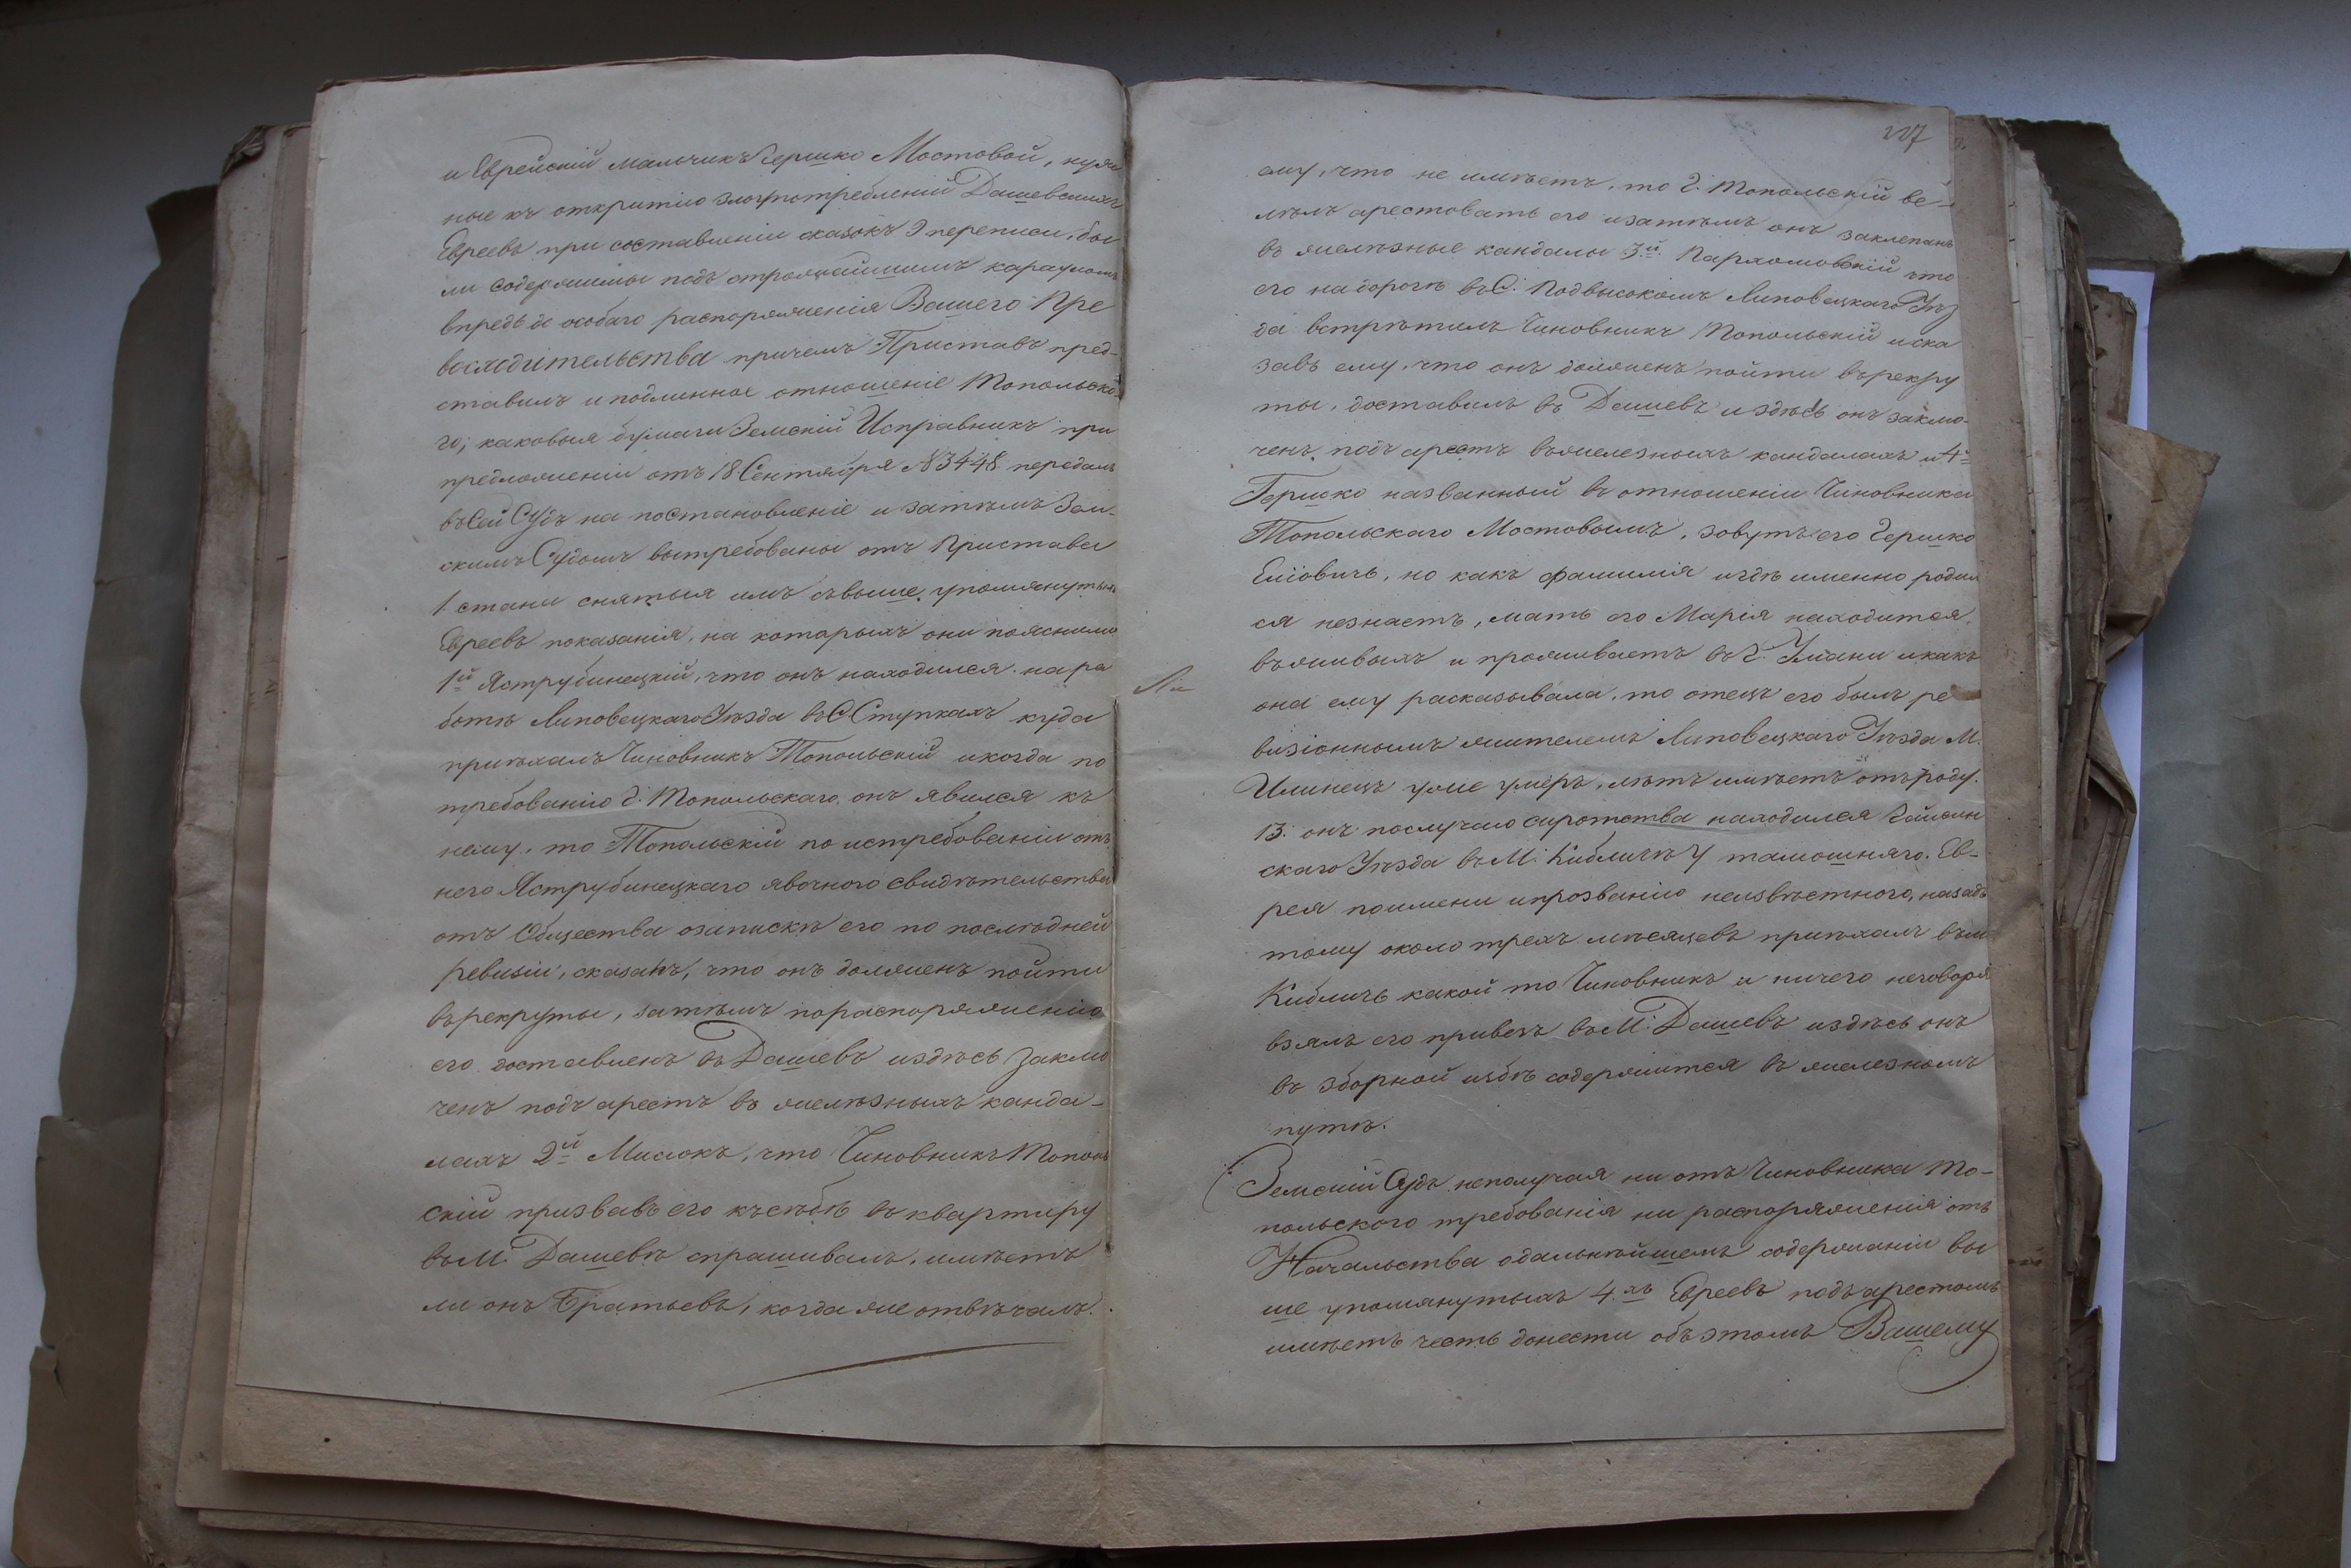 и Еврейскій мальчикъ Гершко Мостовой, нуж
ные къ открытію злоупотребленій Дашевскихъ
Евреевъ при составленіи сказокъ 9 переписи, бы
ли содержимы подъ строжайшимъ карауломъ
впредь до особаго распоряженія Вашего Пре
восходительства причемъ Приставъ пред-
ставилъ и подлинное отношеніе Топольска
го; каковыя бумаги Земскій Исправникъ при
предложеніи отъ 18 Сентября №3448 передалъ
въ сей Судъ на постановленіе и затѣмъ Зем-
скимъ Судомъ вытребованы отъ Пристава
1. стана снятыя имъ съ выше упомянутыхъ
Евреевъ показанія, на которыхъ они пояснили
1й Яструбинецкій, что онъ находился на ра
ботѣ Липовецкаго Уѣзда въ С Ступкахъ куда
пріѣхалъ Чиновникъ Топольскій и когда по
требованію Г. Топольскаго онъ явился къ
нему, то Топольскій по истребованіи отъ
него Яструбинецкаго явочного свидѣтельства
отъ Общества о запискѣ его по послѣдней
ревизіи, сказалъ, что онъ долженъ пойти
въ рекруты, затѣмъ по распоряженію
его доставленъ въ Дашевъ и здѣсь заклю
ченъ подъ арестъ въ желѣзныхъ канда-
лахъ 2й Мислокъ, что Чиновникъ Тополь
скій призвавъ его къ себѣ въ квартиру
въ М. Дашевѣ спрашивалъ, имѣетъ
ли онъ Братьевъ, когда же отвѣчалъ.
227
ему, что не имѣетъ, то Г. Топольскій ве-
лѣлъ арестовать его и затѣмъ онъ заклепанъ
въ желѣзные кандалы 3й Пархомовскій что
его на дорогѣ въ С. Подвысокомъ Липовецкаго Уѣз
да встрѣтилъ Чиновникъ Топольскій и ска
завъ ему, что онъ долженъ пойти въ рекру
ты, доставилъ въ Дашевъ и здѣсь онъ заклю-
ченъ подъ арестъ въ железныхъ кандалахъ и 4й
Гершко названный въ отношеніи Чиновника
Топольскаго Мостовымъ, зовутъ его Гершко
но какъ фамилія и гдѣ именно родил
ся незнаетъ, мать его Марія находится
въ живыхъ и проживаетъ въ Г. Умани и какъ
она ему расказывала, то отецъ его былъ ре
визіоннымъ жителемъ Липовецкаго Уѣзда М.
Илинецъ уже умеръ, лѣтъ имѣетъ отъ роду
13. онъ по случаю сиротства находился Гайсин
скаго Уѣзда въ М. Кибличѣ у тамошняго Ев-
рея по имени и прозванію неизвѣстного, назадъ
тому около трехъ мѣсяцевъ пріѣхалъ въ м
Кибличъ какой то Чиновникъ и ничего неговоря
взялъ его привезъ въ М. Дашевъ и здѣсь онъ
въ зборной избѣ содержится въ железномъ
путѣ.
Земскій Судъ неполучая ни отъ Чиновника То-
польского требованія ни распоряженія отъ
Начальства о дальнѣйшемъ содержаніи вы
ше упомянутыхъ 4хъ Евреевъ подъ арестомъ
имѣетъ честь донести объ этомъ Вашему